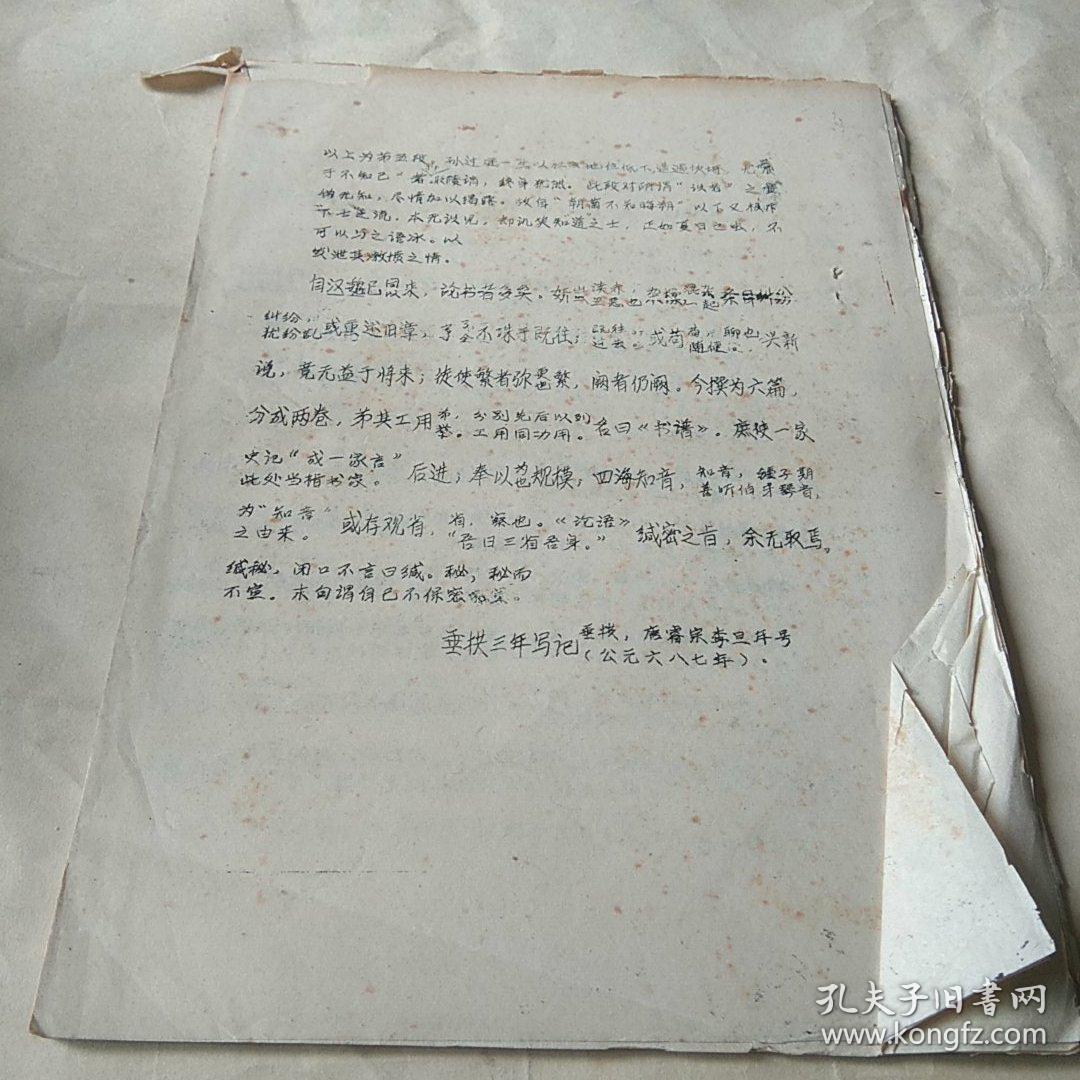 以上为第五段，孙过庭一生以社会地位低下，遭遇
于不知己"者
无知，尽情加以揭露。故自"朝菌不知晦朔"以下又
下士逆流，本无识见，却讥笑"知道"之士，正如夏日之虫，不
可以与之语冰。以
泄其激愤之情。
自汉魏已来，论书者多矣。妍蚩杂糅，条目纠纷
纠纷，
扰纷乱 或重述旧章，了了全不殊乎既往；既往，过去。或苟苟，聊也随便。兴新
说，竟无益于将来；徒使繁者弥更也繁，阙者仍阙。今撰为六篇，
分成两卷，弟其工用弟，分别先后以列举。工用同功用。名曰《书谱》。庶使一家
史记"成一家言"
此处当指书家。 后进；奉以规模；四海知音，知音，钟子期善听伯牙琴音，
为"知音"
之由来。 或存观省，省，察也。《论语》"吾日三省吾身。" 缄密之旨，余无取焉。
缄秘，闭口不言曰缄。秘，秘而
不宣。末句谓自己不保密
垂拱三年写记垂拱，唐睿宗李旦年号（公元六八七年）。
孔夫子旧書网
www.kongfz.com